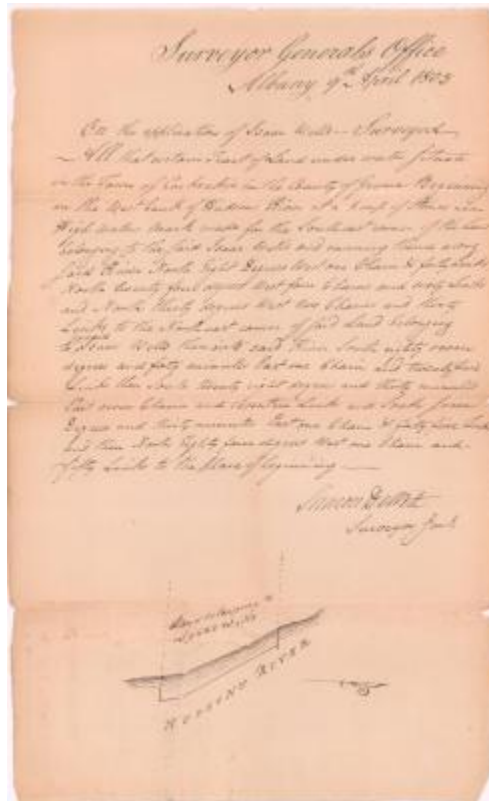 Surveyor Generals Office
Albany 9th April 1803
On the application of Isaac Wells Surveyed
All that certain Tract of Land under water situate
in the Town of in the County of Greene Beginning
on the West bank of Hudson River at a heap of stones
High water mark made for the Southeast corner of the land
belonging to the said Isaac Wells and running thence along
said River North Eight Degrees West one Chain & forty Links
North twenty four degrees West four Chains and sixty Links
and North thirty degrees West two Chains and thirty
Links to the Northeast corner of said Land belonging
to Isaac Wells then into said River South eighty seven
degrees and forty minutes East one Chain and
Links then South twenty eight degrees and thirty minutes
East seven Chains and Links and South
Degrees and thirty minutes East one Chain & forty Links
and then North Eighty four degrees West one Chain and
fifty Links to the place of beginning
Simeon DeWitt
Surveyor Genl
Land belonging to
Isaac Wells
HUDSONS RIVER